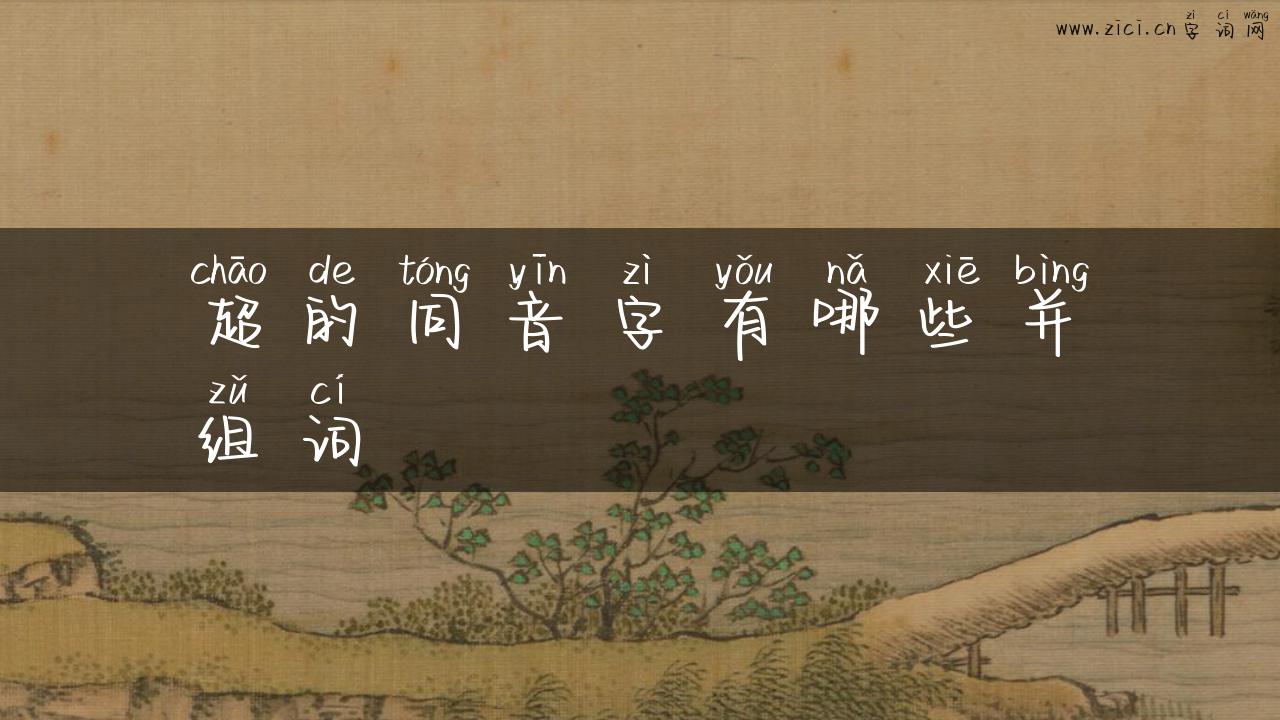 zì cí wǎng
www.zici.cn 字 词 网
chāo de tóng yīn zì yǒu nǎ xiē bìng
超 的 同 音 字 有 哪 些 并
zǔ cí
组 词